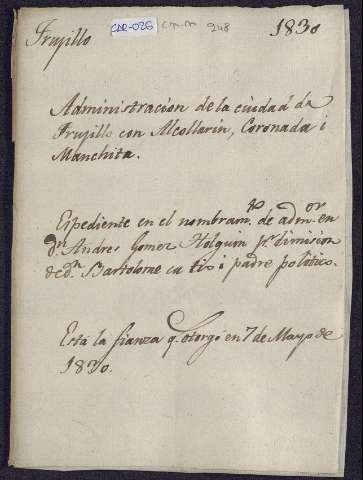 Trujillo 1830
Administracion de la ciudad de
Trujillo con Alcollarin, Coronada i
Manchita.
Espediente en el nombram.to de adm.or en
d.n Andres Gomez Holguin p.r dimision
de d.n Bartolome su tio i padre politico.
Está la fianza q. otorgó en 7 de Mayo de
1830.